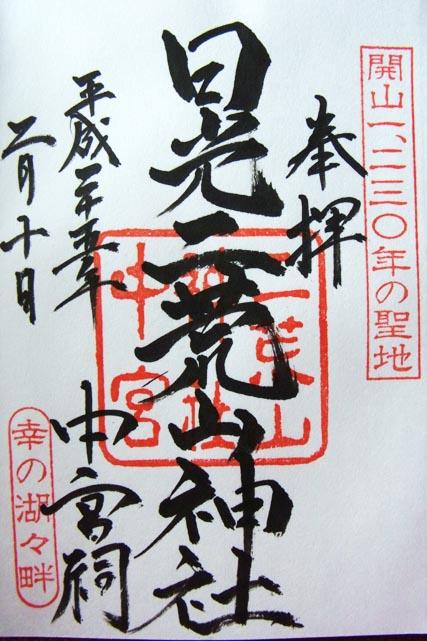 開山一、二三〇年の聖地
奉拝
日光二荒山神社
中宮祠
二荒山
神社
中宮
平成二十五年
二月十日
幸の湖々畔